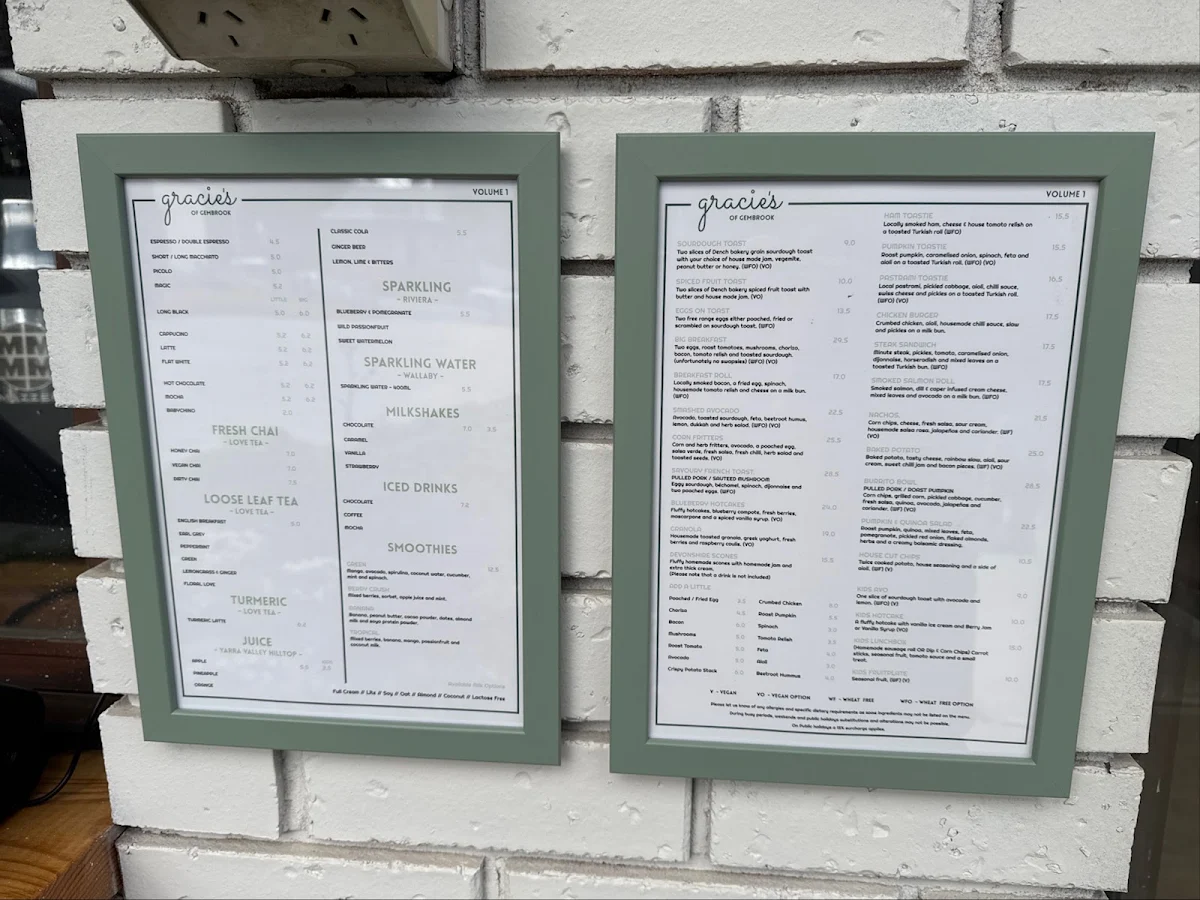 gracie's
OF GEMBROOK
VOLUME 1
ESPRESSO / DOUBLE ESPRESSO 4.5
SHORT / LONG MACCHIATO 5.0
PICOLO 5.0
MAGIC 5.2
LITTLE BIG
LONG BLACK 5.0 6.0
CAPPUCINO 5.2 6.2
LATTE 5.2 6.2
FLAT WHITE 5.2 6.2
HOT CHOCOLATE 5.2 6.2
MOCHA 5.2 6.2
BABYCHINO 2.0
FRESH CHAI
- LOVE TEA -
HONEY CHAI 7.0
VEGAN CHAI 7.0
DIRTY CHAI 7.5
LOOSE LEAF TEA
- LOVE TEA -
ENGLISH BREAKFAST 5.0
EARL GREY
PEPPERMINT
GREEN
LEMONGRASS & GINGER
FLORAL LOVE
TURMERIC
- LOVE TEA -
TURMERIC LATTE
JUICE
- YARRA VALLEY HILLTOP -
APPLE
PINEAPPLE
ORANGE
CLASSIC COLA 5.5
GINGER BEER
LEMON, LIME & BITTERS
SPARKLING
- RIVIERA -
BLUEBERRY & POMEGRANATE 5.5
WILD PASSIONFRUIT
SWEET WATERMELON
SPARKLING WATER
- WALLABY -
SPARKLING WATER - 400ML 5.5
MILKSHAKES
CHOCOLATE 7.0
CARAMEL
VANILLA
STRAWBERRY
ICED DRINKS
CHOCOLATE
COFFEE
MOCHA
SMOOTHIES
GREEN 12.5
Mango, avocado, spirulina, coconut water, cucumber,
mint and spinach.
BERRY CRUSH
Mixed berries, sorbet, apple juice and mint.
BANANA
Banana, peanut butter, cacao powder, dates, almond
milk and soya protein powder.
TROPICAL
Mixed berries, banana, mango, passionfruit and
coconut milk.
Available Milk Options
Full Cream // Lite // Soy // Oat // Almond // Coconut // Lactose Free
gracie's
OF GEMBROOK
VOLUME 1
SOURDOUGH TOAST 9.0
Two slices of Dench bakery grain sourdough toast
with your choice of house made jam, vegemite,
peanut butter or honey. (WFO) (VO)
SPICED FRUIT TOAST 10.0
Two slices of Dench bakery spiced fruit toast with
butter and house made jam. (VO)
EGGS ON TOAST 13.5
Two free range eggs either poached, fried or
scrambled on sourdough toast. (WFO)
BIG BREAKFAST 29.5
Two eggs, roast tomatoes, mushrooms, chorizo,
bacon, tomato relish and toasted sourdough.
(unfortunately no swapsies) (WFO)
BREAKFAST ROLL 17.0
Locally smoked bacon, a fried egg, spinach,
housemade tomato relish and cheese on a milk bun.
(WFO)
SMASHED AVOCADO 22.5
Avocado, toasted sourdough, feta, beetroot humus,
lemon, dukkah and herb salad. (WFO) (VO)
CORN FRITTERS 25.5
Corn and herb fritters, avocado, a poached egg,
salsa verde, fresh salsa, fresh chilli, herb salad and
toasted seeds. (VO)
SAVOURY FRENCH TOAST
PULLED PORK / SAUTEED MUSHROOM
Eggy sourdough, béchamel, spinach, dijonnaise and
two poached eggs. (WFO)
BLUEBERRY HOTCAKES 24.0
Fluffy hotcakes, blueberry compote, fresh berries,
mascarpone and a spiced vanilla syrup. (VO)
GRANOLA 19.0
Housemade toasted granola, greek yoghurt, fresh
berries and raspberry coulis. (VO)
DEVONSHIRE SCONES 15.5
Fluffy homemade scones with homemade jam and
extra thick cream.
(Please note that a drink is not included)
ADD A LITTLE
Poached / Fried Egg 3.5
Chorizo 4.5
Bacon 6.0
Mushrooms 5.0
Roast Tomato 5.0
Avocado 5.0
Crispy Potato Stack 6.0
Crumbed Chicken
Roast Pumpkin
Spinach
Tomato Relish
Feta
Aioli
Beetroot Hummus
HAM TOASTIE 15.5
Locally smoked ham, cheese & house tomato relish on
a toasted Turkish roll (WFO)
PUMPKIN TOASTIE 15.5
Roast pumpkin, caramelised onion, spinach, feta and
aioli on a toasted Turkish roll. (WFO) (VO)
PASTRAMI TOASTIE 16.5
Local pastrami, pickled cabbage, aioli, chilli sauce,
swiss cheese and pickles on a toasted Turkish roll.
(WFO) (VO)
CHICKEN BURGER 17.5
Crumbed chicken, aioli, housemade chilli sauce, slaw
and pickles on a milk bun.
STEAK SANDWICH 17.5
Minute steak, pickles, tomato, caramelised onion,
dijonnaise, horseradish and mixed leaves on a
toasted Turkish bun. (WFO)
SMOKED SALMON ROLL 17.5
Smoked salmon, dill & caper infused cream cheese,
mixed leaves and avocado on a milk bun.
NACHOS. 21.5
Corn chips, cheese, fresh salsa, sour cream,
housemade salsa rosa, jalapeños and coriander. (WF)
(VO)
BAKED POTATO 25.0
Baked potato, tasty cheese, rainbow slaw, aioli, sour
cream, sweet chilli jam and bacon pieces. (WF) (VO)
BURRITO BOWL 28.5
PULLED PORK / ROAST PUMPKIN
Corn chips, grilled corn, pickled cabbage, cucumber,
fresh salsa, quinoa, avocado, jalapeños and
coriander. (WF) (VO)
PUMPKIN & QUINOA SALAD 22.5
Roast pumpkin, quinoa, mixed leaves, feta,
pomegranate, pickled red onion, flaked almonds,
herbs and a creamy balsamic dressing.
HOUSE CUT CHIPS 10.5
Twice cooked potato, house seasoning and a side of
aioli. (WF) (V)
KIDS AVO 9.0
One slice of sourdough toast with avocado and
lemon. (WFO) (V)
KIDS HOTCAKE 10.0
A fluffy hotcake with vanilla ice cream and Berry Jam
or Vanilla Syrup (VO)
KIDS LUNCHBOX 15.0
(Homemade sausage roll OR Dip & Corn Chips) Carrot
sticks, seasonal fruit, tomato sauce and a small
treat.
KIDS FRUITPLATE 10.0
Seasonal fruit, (WF) (V)
V - VEGAN VO - VEGAN OPTION WF - WHEAT FREE WFO - WHEAT FREE OPTION
Please let us know of any allergies and specific dietary requirements as some ingredients may not be listed on the menu.
During busy periods, weekends and public holidays substitutions and alterations may not be possible.
On Public holidays a 15% surcharge applies.